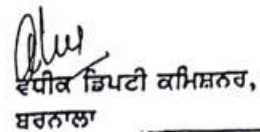 ਵਧੀਕ ਡਿਪਟੀ ਕਮਿਸ਼ਨਰ,
ਬਰਨਾਲਾ